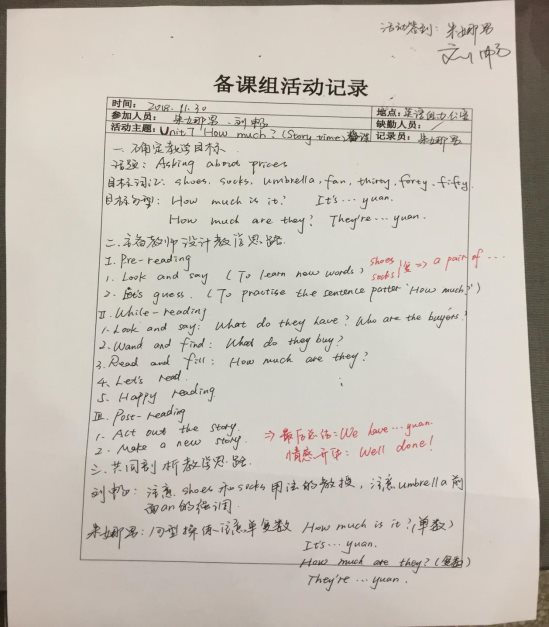 活动签到: 朱娜男
刘畅
备课组活动记录
时间: 2018.11.30 地点: 英语组办公室
参加人员: 朱娜男、刘畅 缺勤人员: /
活动主题: Unit 7 How much? (Story time) 备课 记录员: 朱娜男
一. 确定教学目标.
话题: Asking about prices
目标词汇: shoes, socks, umbrella, fan, thirty, forty, fifty.
目标句型: How much is it? It's … yuan.
How much are they? They're … yuan.
二. 主备教师设计教学思路.
I. Pre-reading
1. Look and say (To learn new words) shoes socks 复 => a pair of …
2. Let's guess. (To practise the sentence patter 'How much?')
II. While-reading
1. Look and say: What do they have? Who are the buyers?
2. Wand and find: What do they buy?
3. Read and fill: How much are they?
4. Let's read.
5. Happy reading
III. Post-reading
1. Act out the story.
2. Make a new story. => 最后总结: We have … yuan.
情感升华: Well done!
三. 共同剖析教学思路.
刘畅: 注意 shoes 和 socks 用法的教授, 注意 umbrella 前
面 an 的强调
朱娜男: 句型操练注意单复数 How much is it? (单数)
It's … yuan.
How much are they? (复数)
They're … yuan.